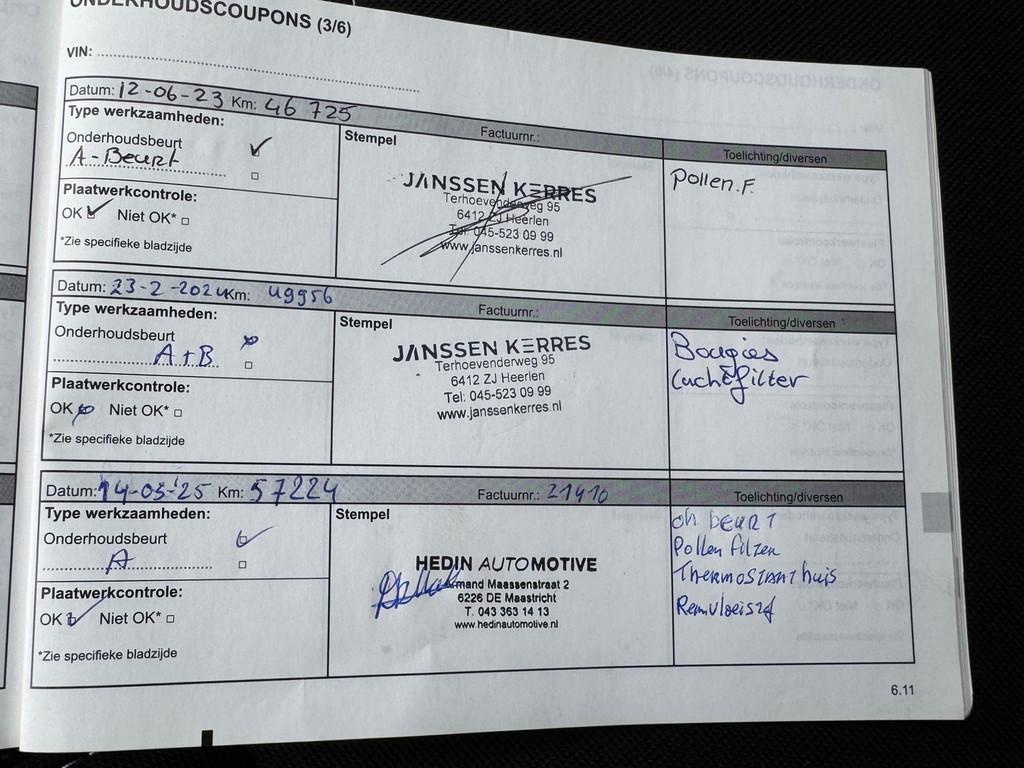 ONDERHOUDSCOUPONS (3/6)
VIN:
Datum: 12-06-23 Km: 46 725
Type werkzaamheden:
Stempel
Factuurnr.:
Toelichting/diversen
Onderhoudsbeurt
A-Beurt
Pollen.F.
JANSSEN KERRES
Terhoevenderweg 95
6412 ZJ Heerlen
Tel: 045-523 09 99
www.janssenkerres.nl
Plaatwerkcontrole:
OK Niet OK*
*Zie specifieke bladzijde
Datum: 23-2-2024 Km: 49956
Type werkzaamheden:
Stempel
Factuurnr.:
Toelichting/diversen
Onderhoudsbeurt
A+B
Bougies
Luchtfilter
JANSSEN KERRES
Terhoevenderweg 95
6412 ZJ Heerlen
Tel: 045-523 09 99
www.janssenkerres.nl
Plaatwerkcontrole:
OK Niet OK*
*Zie specifieke bladzijde
Datum: 14-03-'25 Km: 57224
Factuurnr.: 21410
Toelichting/diversen
Type werkzaamheden:
Stempel
Onderhoudsbeurt
A
oh BEURT
Pollen filter
Thermostaat huis
Remvloeistof
HEDIN AUTOMOTIVE
Maassenstraat 2
6226 DE Maastricht
T. 043 363 14 13
www.hedinautomotive.nl
Plaatwerkcontrole:
OK Niet OK*
*Zie specifieke bladzijde
6.11